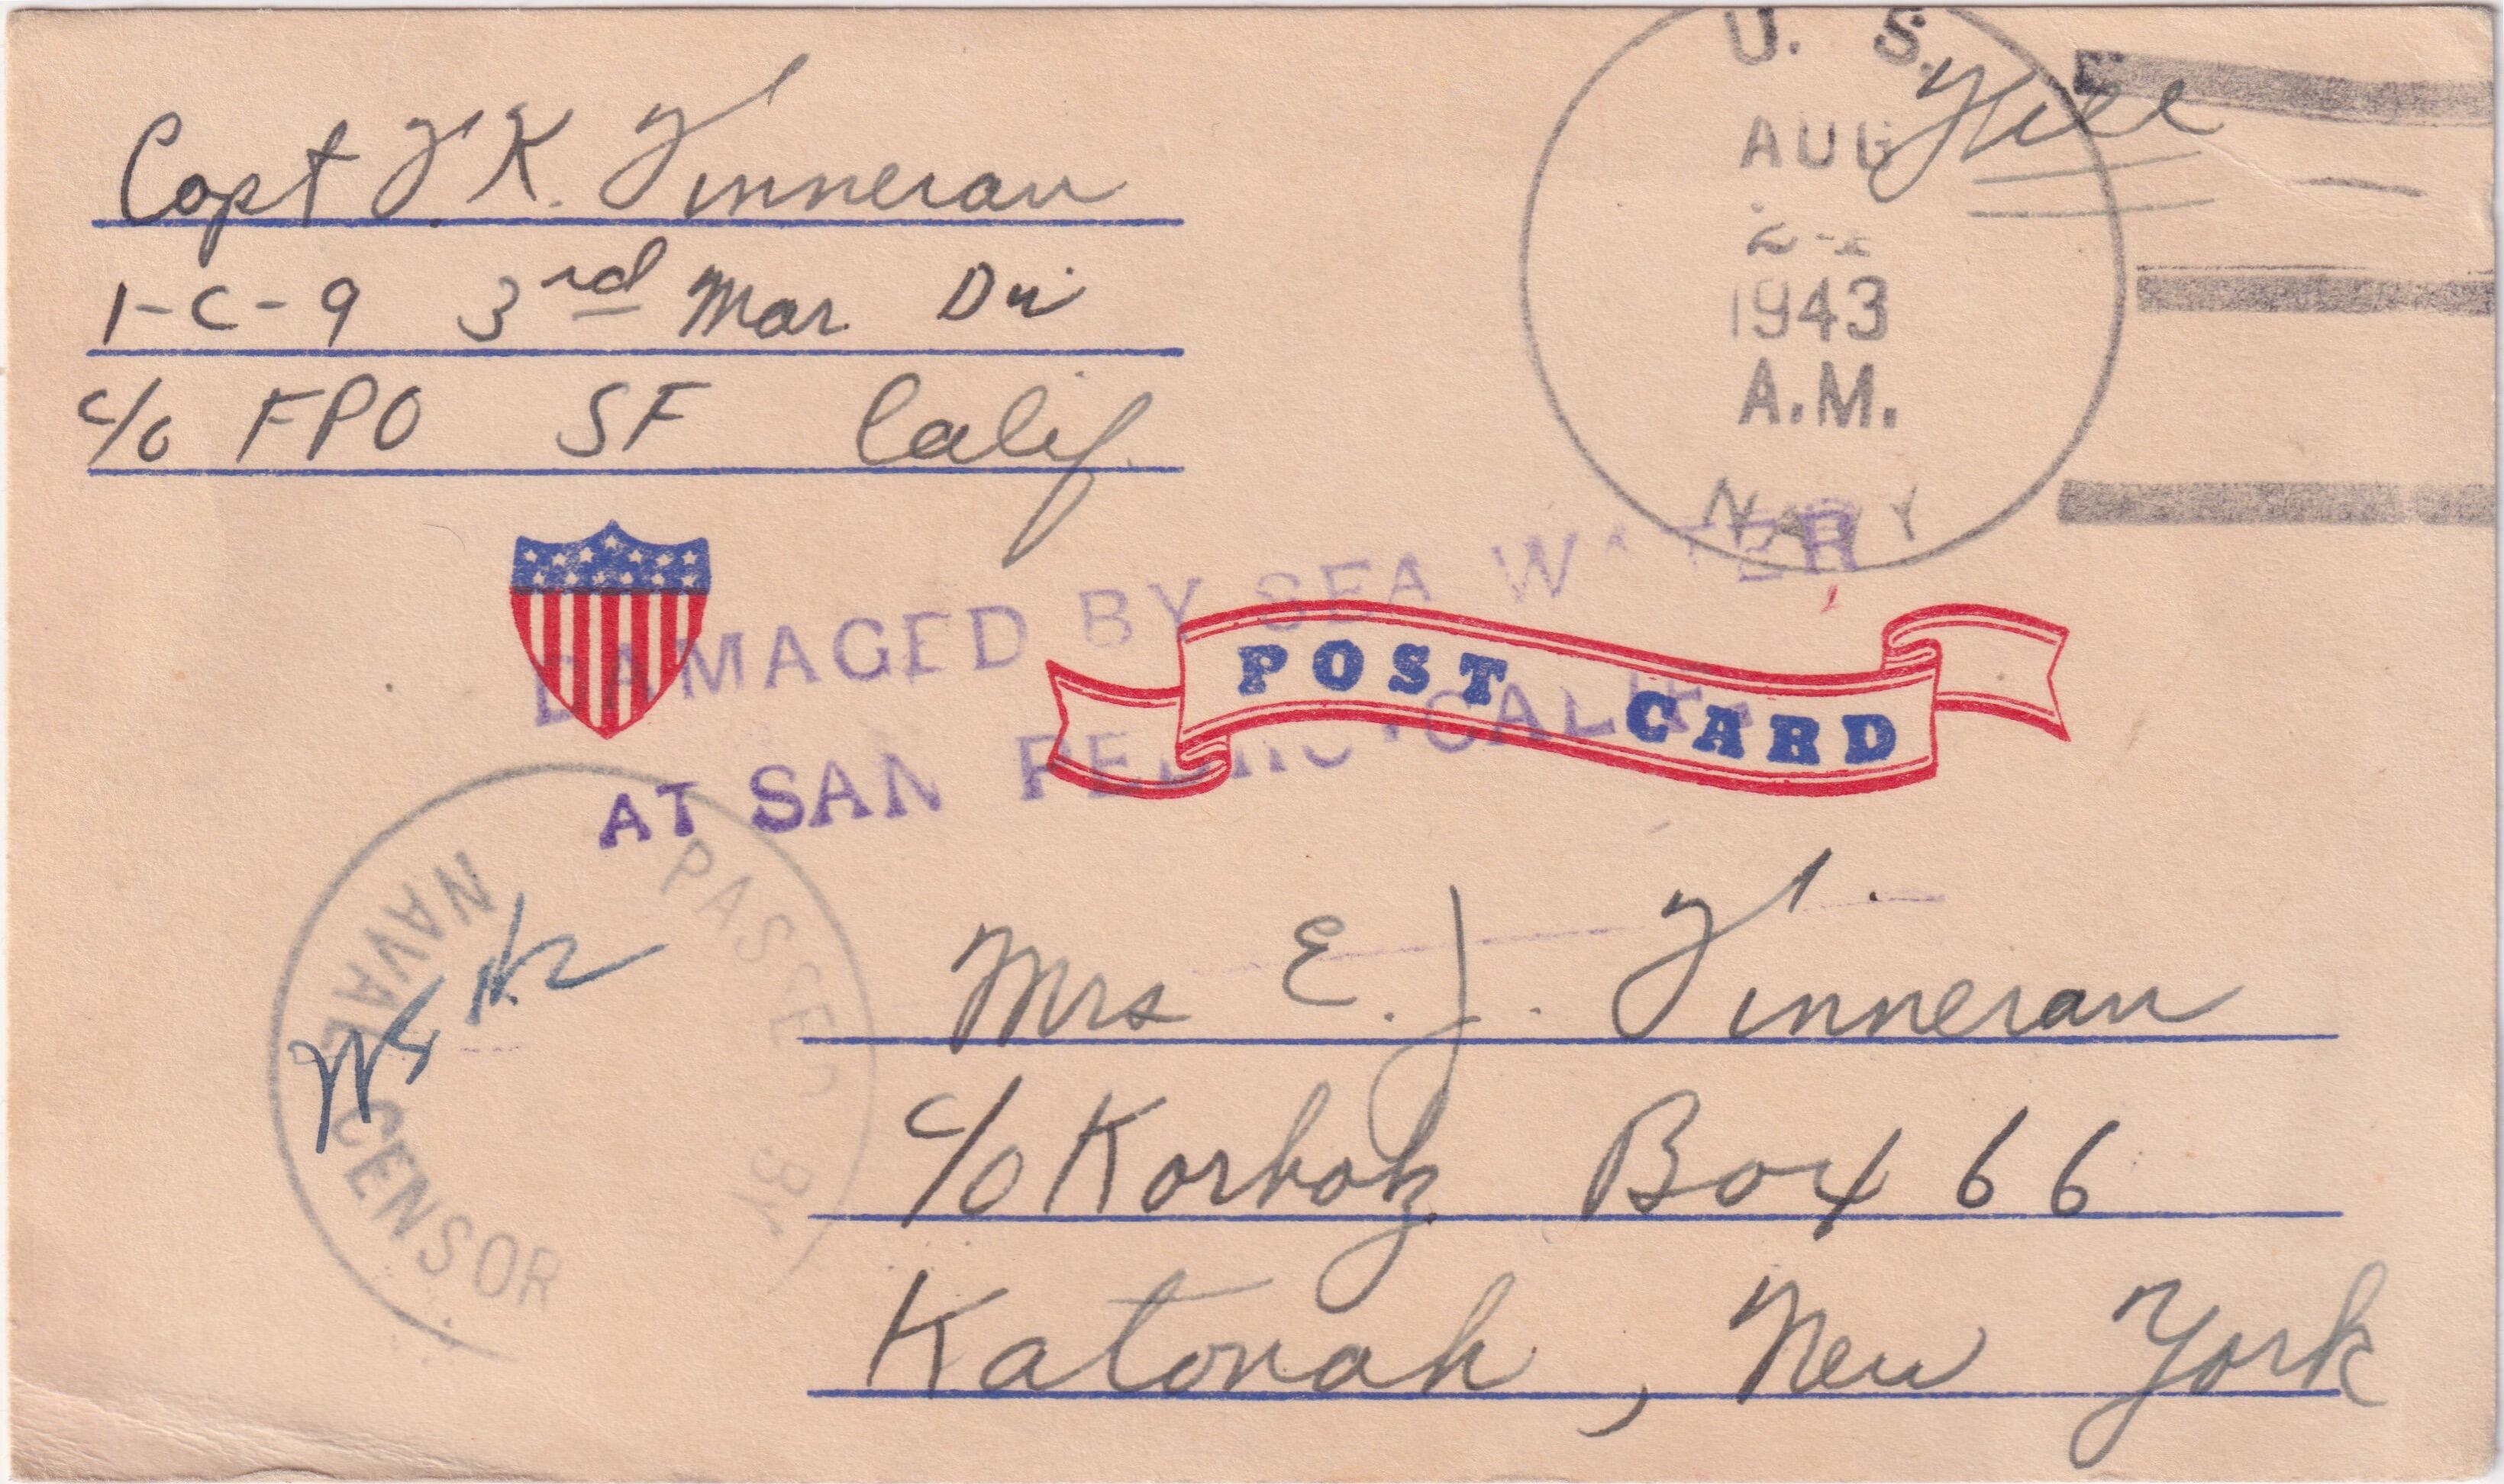 Capt F. K. Finneran
1-C-9 3rd Mar Div
c/o FPO SF Calif.
Free
U. S.
AUG
1943
A.M.
NAVY
DAMAGED BY SEA WATER
AT SAN PEDRO, CALIF.
POST CARD
PASSED BY
NAVAL CENSOR
Mrs E. J. Finneran
c/o Korholz Box 66
Katonah, New York